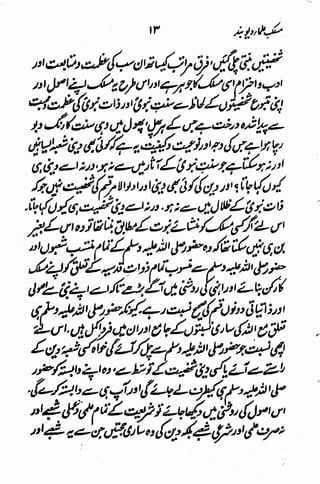 مسلک علماء دیوبند ۱۳
شخصیتیں بنتی چلی گئیں، فرق مراتب کیساتھ ان سب کی عظمت و متابعت اور
ادب و احترام اسی مسلک کا جوہر ہے اور اس طرح یہ مسلک اپنے اصول اور
اپنی متبوع شخصیتوں کے لحاظ سے سنت نبویؐ اور ذات نبویؐ کی عظمت و محبت
سے پیدا شدہ درخت ہے جس کے ہر پھل پھول میں وہی سنت کا رنگ و بو
رچا ہوا ہے جس کی وجہ اور نوعیت و کیفیت یہ ہے کہ کوئی بھی دینی شعبہ ایسا نہیں
اور نہ ہو سکتا ہے جو سنت نبویؐ کے آثار میں سے نہ ہو، ورنہ اسے دینی ہی
کیوں کہا جاتا؟ اور دین کی کوئی بھی دینی اور اولوالامر قسم کی شخصیت نہیں جو کہ
ذات نبویؐ کے ظلال میں سے نہ ہو۔ ورنہ اسے دینی شخصیت ہی کیوں کہا جاتا۔
اس لئے اگر کسی مسلک کو منشائے نبوت کے مطابق بننا تھا تو وہ اس کے بغیر
بن ہی نہیں سکتا تھا کہ وہ حضور صلی اللہ علیہ وسلم کے تمام منتسب شعبوں اور
حضور صلی اللہ علیہ وسلم سے منسوب تمام ذوات قدسیہ کے تعلق کو اپنے مسلک
کا رکن بنائے اور انہی کی روشنی میں آگے بڑھے تاکہ اسے اپنے نبی سے اصولی
اور ذاتیاتی دونوں قسم کی صحیح نسبت رہے، کیونکہ حضور صلی اللہ علیہ وسلم ہی
تعلق مع اللہ کی ساری نسبتوں کے جامع اور ان میں فرد اکمل ہیں۔ اس لئے
اچھی نسبت جو حضور صلی اللہ علیہ وسلم سے چل کر آئے گی خواہ کسی شعبہ دین کے
راستے سے آئے یا کسی دینی شخصیت کے توسط سے، وہ اپنے وابستہ کو حضور
صلی اللہ علیہ وسلم ہی کیطرف لے جائے گی اور آپ ہی سے وابستہ کرے گی۔
اس اصول کی روشنی میں دیکھا جائے تو شریعت کے تمام علمی و عملی شعبے اور
نہ صرف علمی اور شرعی شعبے بلکہ دین کی وہ ساری حجتیں جن سے یہ شعبے اور